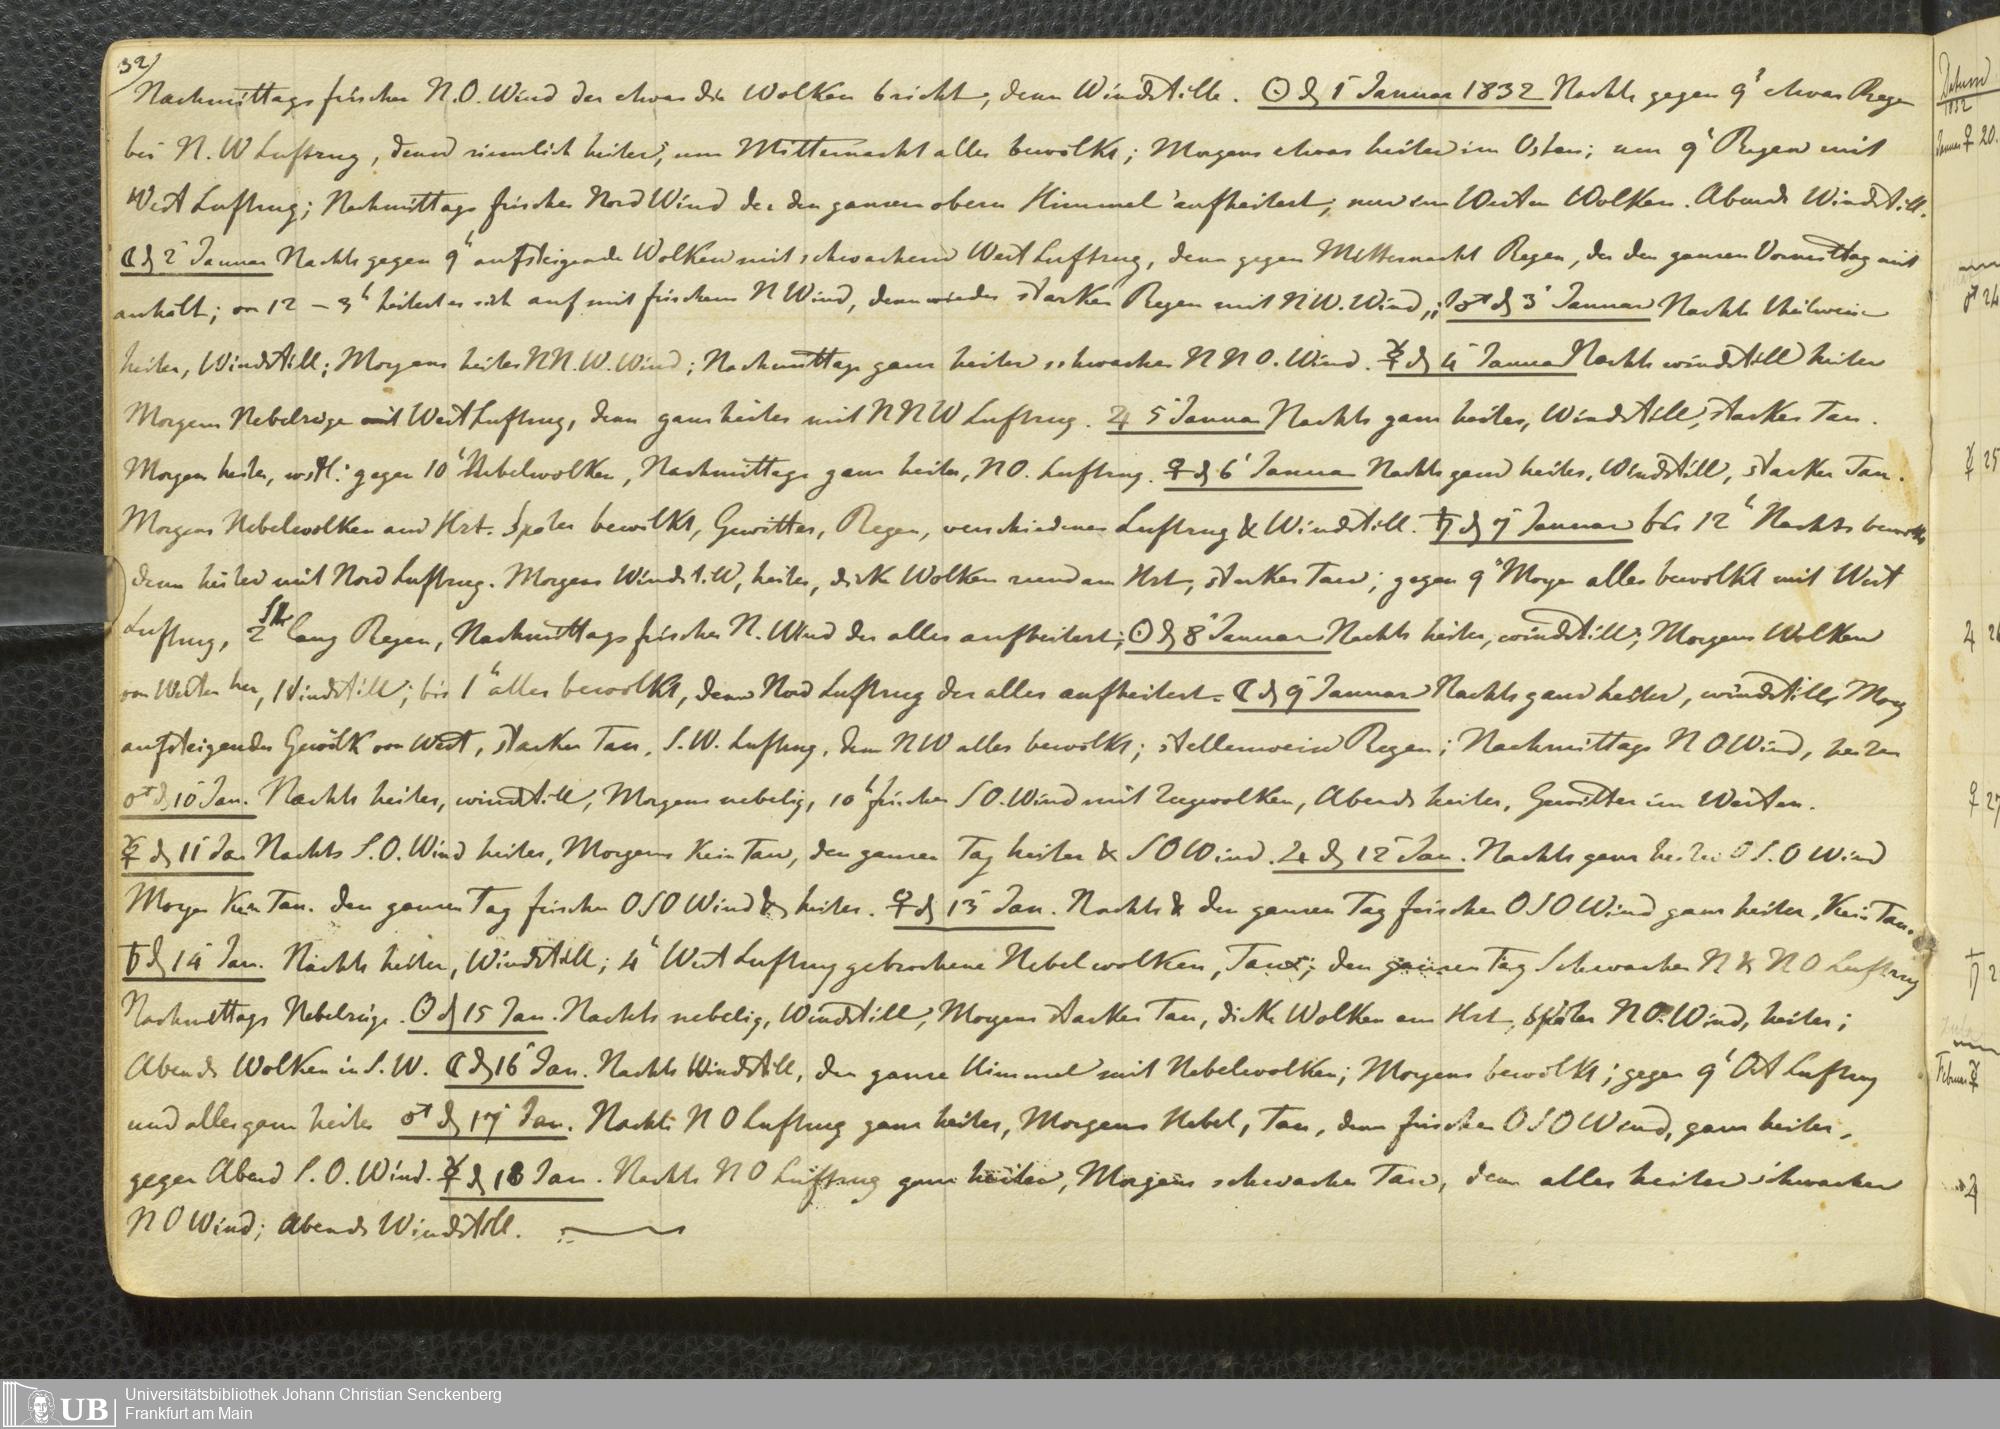 32/
Nachmittags frischer N.O. Wind der etwas die Wolken bricht, dann Windstille. ☉ d 1 Januar 1832 Nachts gegen 9h etwas Regen
bei N. W Luftzug, dann ziemlich heiter, um Mitternacht alles bewölkt; Morgens etwas heiter im Osten; um 9h Regen mit
West Luftzug; Nachmittags frischer Nord Wind der den ganzen obern Himmel aufheitert, nur im Westen Wolken. Abends Windstill.
☾ d 2 Januar Nachts gegen 9h aufsteigende Wolken mit schwachem West Luftzug, dann gegen Mitternacht Regen, der den ganzen Vormittag mit
anhält; von 12 – 3h heitert es sich auf mit frischem N Wind, dann wieder starker Regen mit N W. Wind,; ♂ d 3 Januar Nachts theilweise
heiter, Windstill; Morgens heiter N N. W. Wind; Nachmittags ganz heiter schwacher N N O. Wind. ☿ d 4 Januar Nachts windstill heiter
Morgens Nebelzüge mit West Luftzug, dann ganz heiter mit N N W Luftzug. ♃ 5 Januar Nachts ganz heiter, Windstill, starker Tau.
Morgens heiter, wstl: gegen 10h Nebelwolken, Nachmittags ganz heiter, N O. Luftzug. ♀ d 6 Januar Nachts ganz heiter, Windstill, starker Tau.
Morgens Nebelwolken am Hrt. Später bewölkt, Gewitter, Regen, verschiedener Luftzug & Windstill. ♄ d 7 Januar bis 12h Nachts bewölkt
dann heiter mit Nord Luftzug. Morgens Windstill, heiter, dicke Wolken rund am Hrt, starker Tau; gegen 9h Morgen alles bewölkt mit West
Luftzug, 2 Str lang Regen, Nachmittags frischer N. Wind der alles aufheitert; ☉ d 8 Januar Nachts heiter, windstill; Morgens Wolken
von Westen her, Windstill; bis 1h alles bewölkt, dann Nord Luftzug der alles aufheitert. ☾ d 9 Januar Nachts ganz heiter, windstill; Morg
aufsteigendes Gewölk von West, starker Tau, S. W. Luftzug, dann N W alles bewölkt; stellenweise Regen; Nachmittags N O Wind, heiter
♂ d 10 Jan. Nachts heiter, windstill, Morgens nebelig, 10h frischer S O. Wind mit Zugwolken, Abends heiter, Gewitter im Westen.
☿ d 11 Jan Nachts S. O. Wind heiter, Morgens Kein Tau, den ganzen Tag heiter & S O Wind. ♃ d 12 Jan. Nachts ganz heiter O S. O Wind
Morgen Kein Tau. den ganzen Tag frischer O S O Wind & heiter. ♀ d 13 Jan. Nachts & den ganzen Tag frischer O S O Wind ganz heiter, Kein Tau.
♄ d 14 Jan. Nachts heiter, Windstill; 4h West Luftzug gebrochene Nebelwolken, Tau; den ganzen Tag Schwacher N & N O Luftzug
Nachmittags Nebelzüge. ☉ d 15 Jan. Nachts nebelig, Windstill, Morgens starker Tau, dicke Wolken am Hrt, später N O. Wind, heiter;
Abends Wolken in S. W. ☾ d 16 Jan. Nachts Windstill, der ganze Himmel mit Nebelwolken; Morgens bewölkt; gegen 9h Ost Luftzug
und alles ganz heiter ♂ d 17 Jan. Nachts N O Luftzug ganz heiter, Morgens Nebel, Tau, dann frischer O S O Wind, ganz heiter,
gegen Abend S. O. Wind. ☿ d 18 Jan. Nachts N O Luftzug ganz heiter, Morgens schwacher Tau, dann alles heiter schwacher
N O Wind; Abends Windstill.
Datum
1832
Januar ♀ 20.
♂ 24
☿ 25
♃ 26
♀ 27
♄ 2
Februar ☿
♃
UB Universitätsbibliothek Johann Christian Senckenberg
Frankfurt am Main